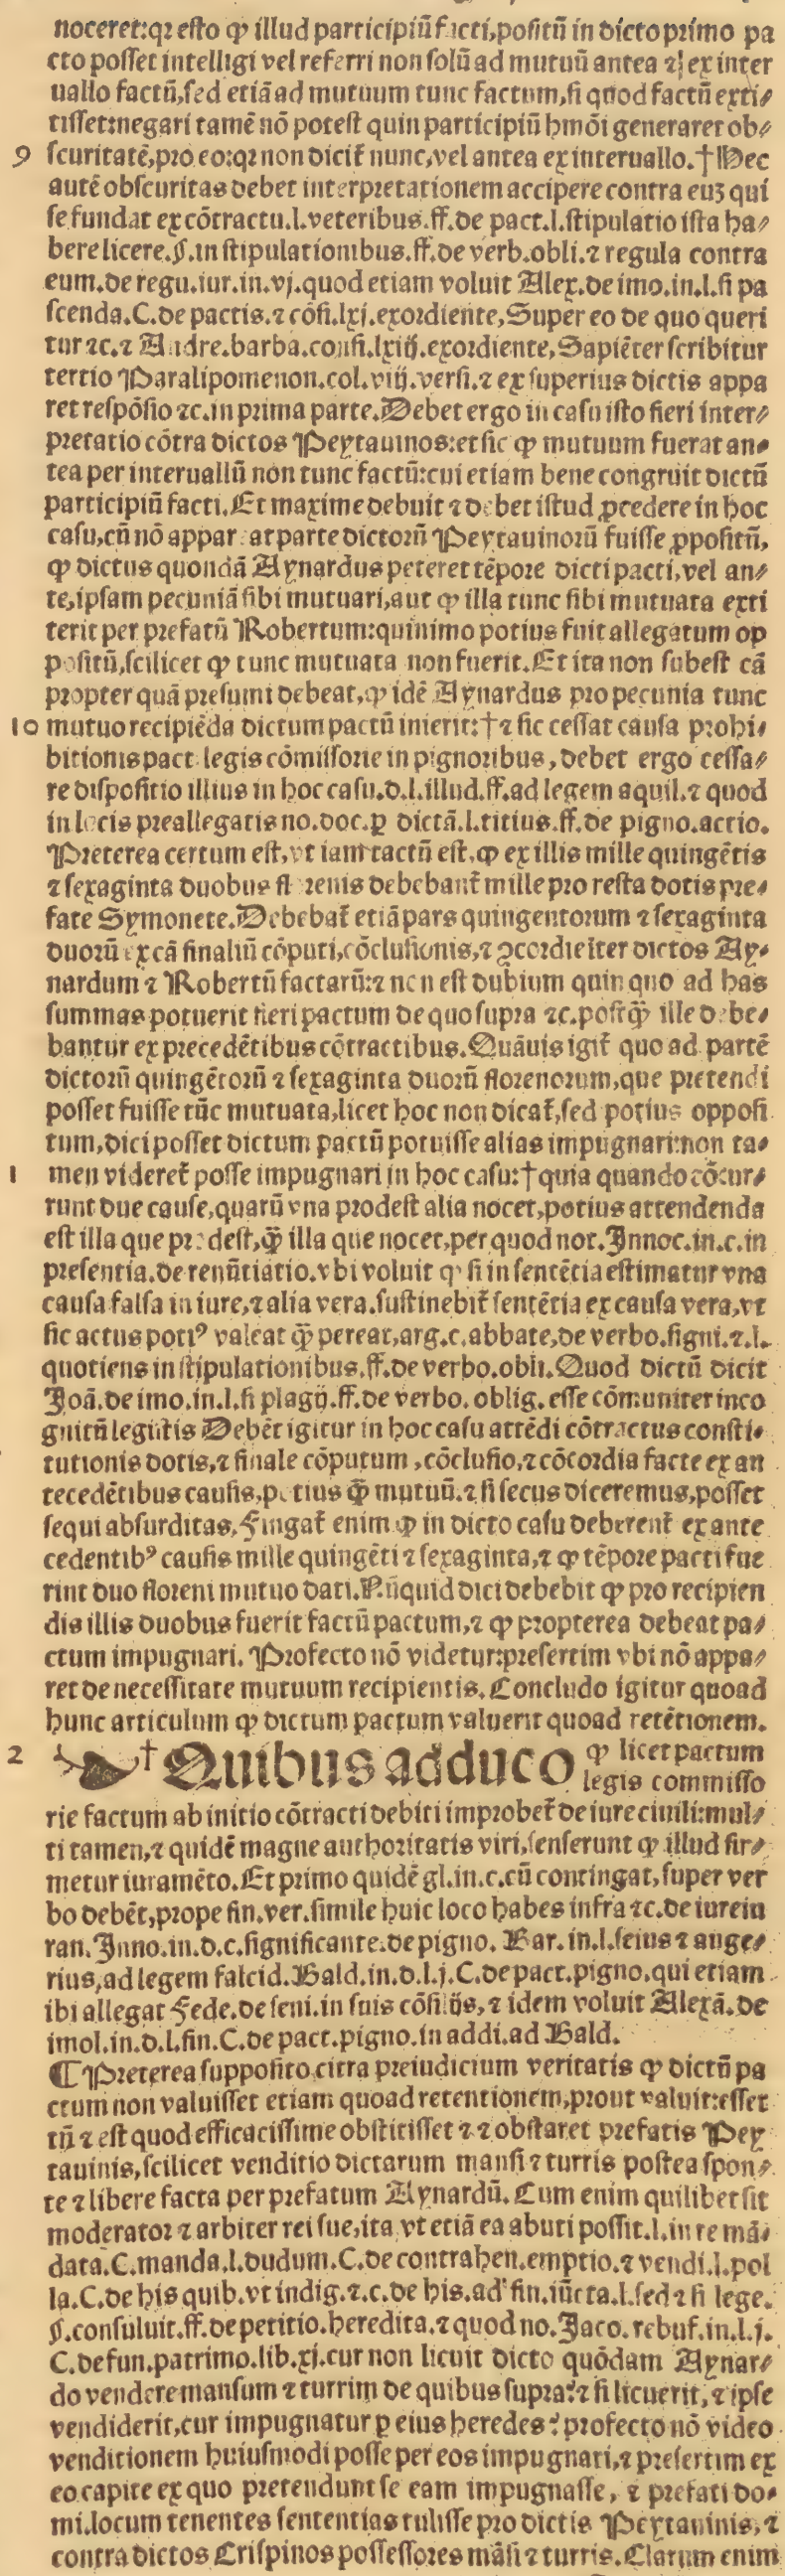 noceret:qꝛ eſto ꝙ illud participiũ facti,poſitũ in dicto pꝛimo pa
cto poſſet intelligi vel referri non ſolũ ad mutuũ antea ⁊ ex inter
uallo factũ,ſed etiã ad mutuum tunc factum,ſi quod factũ exti⸗
tiſſet:negari tamẽ nõ poteſt quin participiũ hmõi generaret ob⸗
9 ſcuritatẽ,pꝛo eo:qꝛ non dicit̃ nunc,vel antea ex interuallo.†Hec
autẽ obſcuritas debet interpꝛetationem accipere contra euꝫ qui
ſe fundat ex cõtractu.l.veteribus.ff.de pact.l.ſtipulatio iſta ha⸗
bere licere.§.in ſtipulationibus.ff.de verb.obli.⁊ regula contra
eum.de regu.iur.in.vj.quod etiam voluit Alex.de imo.in.l.ſi pa
ſcenda.C.de pactis.⁊ cõſi.lxj.exoꝛdiente,Super eo de quo queri
tur ⁊c.⁊ Andre.barba.conſi.lxiij.exoꝛdiente,Sapiẽter ſcribitur
tertio Paralipomenon.col.viij.verſi.⁊ ex ſuperius dictis appa
ret reſpõſio ⁊c.in pꝛima parte.Debet ergo in caſu iſto fieri inter⸗
pꝛetatio cõtra dictos Peytauinos:et ſic ꝙ mutuum fuerat an⸗
tea per interuallũ non tunc factũ:cui etiam bene congruit dictũ
participiũ facti.Et maxime debuit ⁊ debet iſtud ꝓcedere in hoc
caſu,cũ nõ appareat parte dictoꝛũ Peytauinoꝛũ fuiſſe ꝓpoſitũ,
ꝙ dictus quondã Aynardus peteret tẽpoꝛe dicti pacti,vel an⸗
te,ipſam pecuniã ſibi mutuari,aut ꝙ illa tunc ſibi mutuata exti
terit per pꝛefatũ Robertum:quinimo potius fuit allegatum op
poſitũ,ſcilicet ꝙ tunc mutuata non fuerit.Et ita non ſubeſt cã
pꝛopter quã pꝛeſumi debeat,ꝙ idẽ Aynardus pꝛo pecunia tunc
10 mutuo recipiẽda dictum pactũ inierit:†⁊ ſic ceſſat cauſa pꝛohi⸗
bitionis pacti legis cõmiſſoꝛie in pignoꝛibus, debet ergo ceſſa⸗
re diſpoſitio illius in hoc caſu.d.l.illud.ff.ad legem aquil.⁊ quod
in locis pꝛeallegatis no.doc.ꝑ dictã.l.titius.ff.de pigno.actio.
Pꝛeterea certum eſt,vt iam tactũ eſt,ꝙ ex illis mille quingẽtis
⁊ ſexaginta duobus floꝛenis debebant̃ mille pꝛo reſta dotis pꝛe⸗
fate Symonete.Debebat̃ etiã pars quingentoꝛum ⁊ ſexaginta
duoꝛũ ex cã finaliũ cõputi,cõcluſionis,⁊ ꝯcoꝛdie iter dictos Ay⸗
nardum ⁊ Robertũ factarũ:⁊ non eſt dubium quin quo ad has
ſummas potuerit fieri pactum de quo ſupꝛa ⁊c.poſtꝙ̃ ille debe⸗
bantur ex pꝛecedẽtibus cõtractibus.Quãuis igit̃ quo ad partẽ
dictoꝛũ quingẽtoꝛũ ⁊ ſexaginta duoꝛũ floꝛenoꝛum,que pꝛetendi
poſſet fuiſſe tũc mutuata,licet hoc non dicat̃,ſed potius oppoſi
tum,dici poſſet dictum pactũ potuiſſe alias impugnari:non ta⸗
1 men videret̃ poſſe impugnari in hoc caſu:†quia quando cõcur⸗
runt due cauſe,quarũ vna pꝛodeſt alia nocet,potius attendenda
eſt illa que pꝛodeſt,ꝙ̃ illa que nocet,per quod not.Innoc.in.c.in
pꝛeſentia.de renũtiatio.vbi voluit ꝙ ſi in ſentẽtia eſtimatur vna
cauſa falſa in iure,⁊ alia vera.ſuſtinebit̃ ſentẽtia ex cauſa vera,vt
ſic actus potiꝰ valeat ꝙ̃ pereat,arg.c.abbate,de verbo.ſigni.⁊.l.
quotiens in ſtipulationibus.ff.de verbo.obli.Quod dictũ dicit
Joã.de imo.in.l.ſi plagij.ff.de verbo. oblig. eſſe cõmuniter inco
gnitũ legiſtis Debẽt igitur in hoc caſu attẽdi cõtractus conſti⸗
tutionis dotis,⁊ finale cõputum ,cõcluſio,⁊ cõcoꝛdia facte ex an
tecedẽtibus cauſis,potius ꝙ̃ mutuũ.⁊ ſi ſecus diceremus,poſſet
ſequi abſurditas.Fingat̃ enim ꝙ in dicto caſu deberent̃ ex ante
cedentibꝰ cauſis mille quingẽti ⁊ ſexaginta,⁊ ꝙ tẽpoꝛe pacti fue
rint duo floꝛeni mutuo dati.Nũquid dici debebit ꝙ pꝛo recipien
dis illis duobus fuerit factũ pactum,⁊ ꝙ pꝛopterea debeat pa⸗
ctum impugnari. Pꝛofecto nõ videtur:pꝛeſertim vbi nõ appa⸗
ret de neceſſitate mutuum recipientis.Concludo igitur quoad
hunc articulum ꝙ dictum pactum valuerit quoad retẽtionem.
2 ☛†Quibus adduco ꝙ licet pactum
legis commiſſo
rie factum ab initio cõtracti debiti impꝛobet̃ de iure ciuili:mul⸗
ti tamen,⁊ quidẽ magne authoꝛitatis viri,ſenſerunt ꝙ illud fir⸗
metur iuramẽto.Et pꝛimo quidẽ gl.in.c.cũ contingat,ſuper ver
bo debẽt,pꝛope fin.ver.ſimile huic loco habes infra ⁊c.de iureiu
ran.Inno.in.d.c.ſignificante.de pigno. Bar.in.l.ſeius ⁊ auge⸗
rius,ad legem falcid.Bald.in.d.l.j.C.de pact.pigno.qui etiam
ibi allegat Fede.de ſeni.in ſuis cõſilijs,⁊ idem voluit Alexã.de
imol.in.d.l.fin.C.de pact.pigno.in addi.ad Bald.
¶Pꝛeterea ſuppoſito citra pꝛeiudicium veritatis ꝙ dictũ pa
ctum non valuiſſet etiam quoad retentionem,pꝛout valuit:eſſet
tũ ⁊ eſt quod efficaciſſime obſtitiſſet ⁊ ⁊ obſtaret pꝛefatis Pey
tauinis,ſcilicet venditio dictarum manſi ⁊ turris poſtea ſpon⸗
te ⁊ libere facta per pꝛefatum Aynardũ. Cum enim quilibet ſit
moderatoꝛ ⁊ arbiter rei ſue,ita vt etiã ea abuti poſſit.l.in re mã⸗
data.C.manda.l.dudum.C.de contrahen.emptio.⁊ vendi.l.pol
la.C.de his quib.vt indig.⁊.c.de his.ad fin.iũcta.l.ſed ⁊ ſi lege.
§.conſuluit.ff.de petitio.heredita.⁊ quod no.Jaco.rebuf.in.l.j.
C.de fun.patrimo.lib.xj.cur non licuit dicto quõdam Aynar⸗
do vendere manſum ⁊ turrim de quibus ſupꝛa?⁊ ſi licuerit, ⁊ ipſe
vendiderit,cur impugnatur ꝑ eius heredes? pꝛofecto nõ video
venditionem huiuſmodi poſſe per eos impugnari,⁊ pꝛeſertim ex
eo capite ex quo pꝛetendunt ſe eam impugnaſſe, ⁊ pꝛefati do⸗
mi.locum tenentes ſententias tuliſſe pꝛo dictis Peytauinis,⁊
contra dictos Criſpinos poſſeſſoꝛes mãſi ⁊ turris.Clarum enim